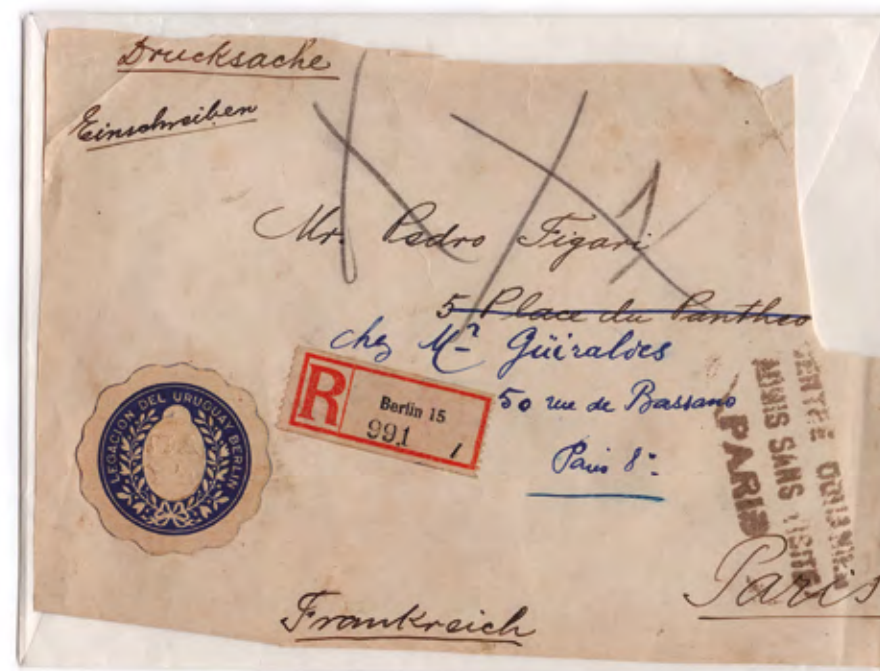 Drucksache
Einschreiben
Mr. Pedro Figari
5 Place du Pantheo
chez Mr Güiraldes
50 rue de Bassano
Paris 8e
R
Berlin 15
991
LEGACIÓN DEL URUGUAY BERLIN
SANS
PARIS
Paris
Frankreich